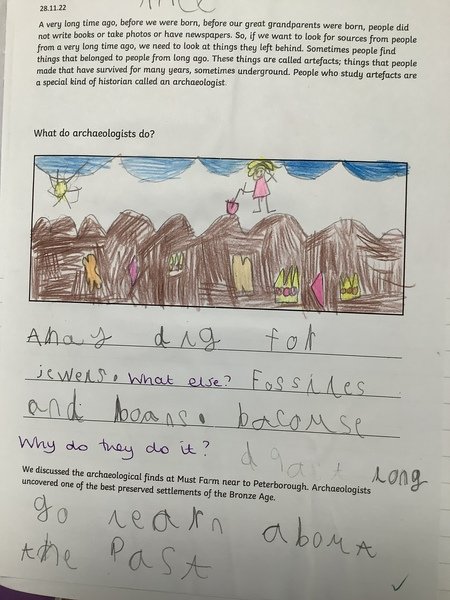 28.11.22
A very long time ago, before we were born, before our great grandparents were born, people did
not write books or take photos or have newspapers. So, if we want to look for sources from people
from a very long time ago, we need to look at things they left behind. Sometimes people find
things that belonged to people from long ago. These things are called artefacts; things that people
made that have survived for many years, sometimes underground. People who study artefacts are
a special kind of historian called an archaeologist.
What do archaeologists do?
dig for
jewers. What else? Fossiles
and boans. bacouse
Why do they do it?
long
We discussed the archaeological finds at Must Farm near to Peterborough. Archaeologists
uncovered one of the best preserved settlements of the Bronze Age.
go learn about
the Past